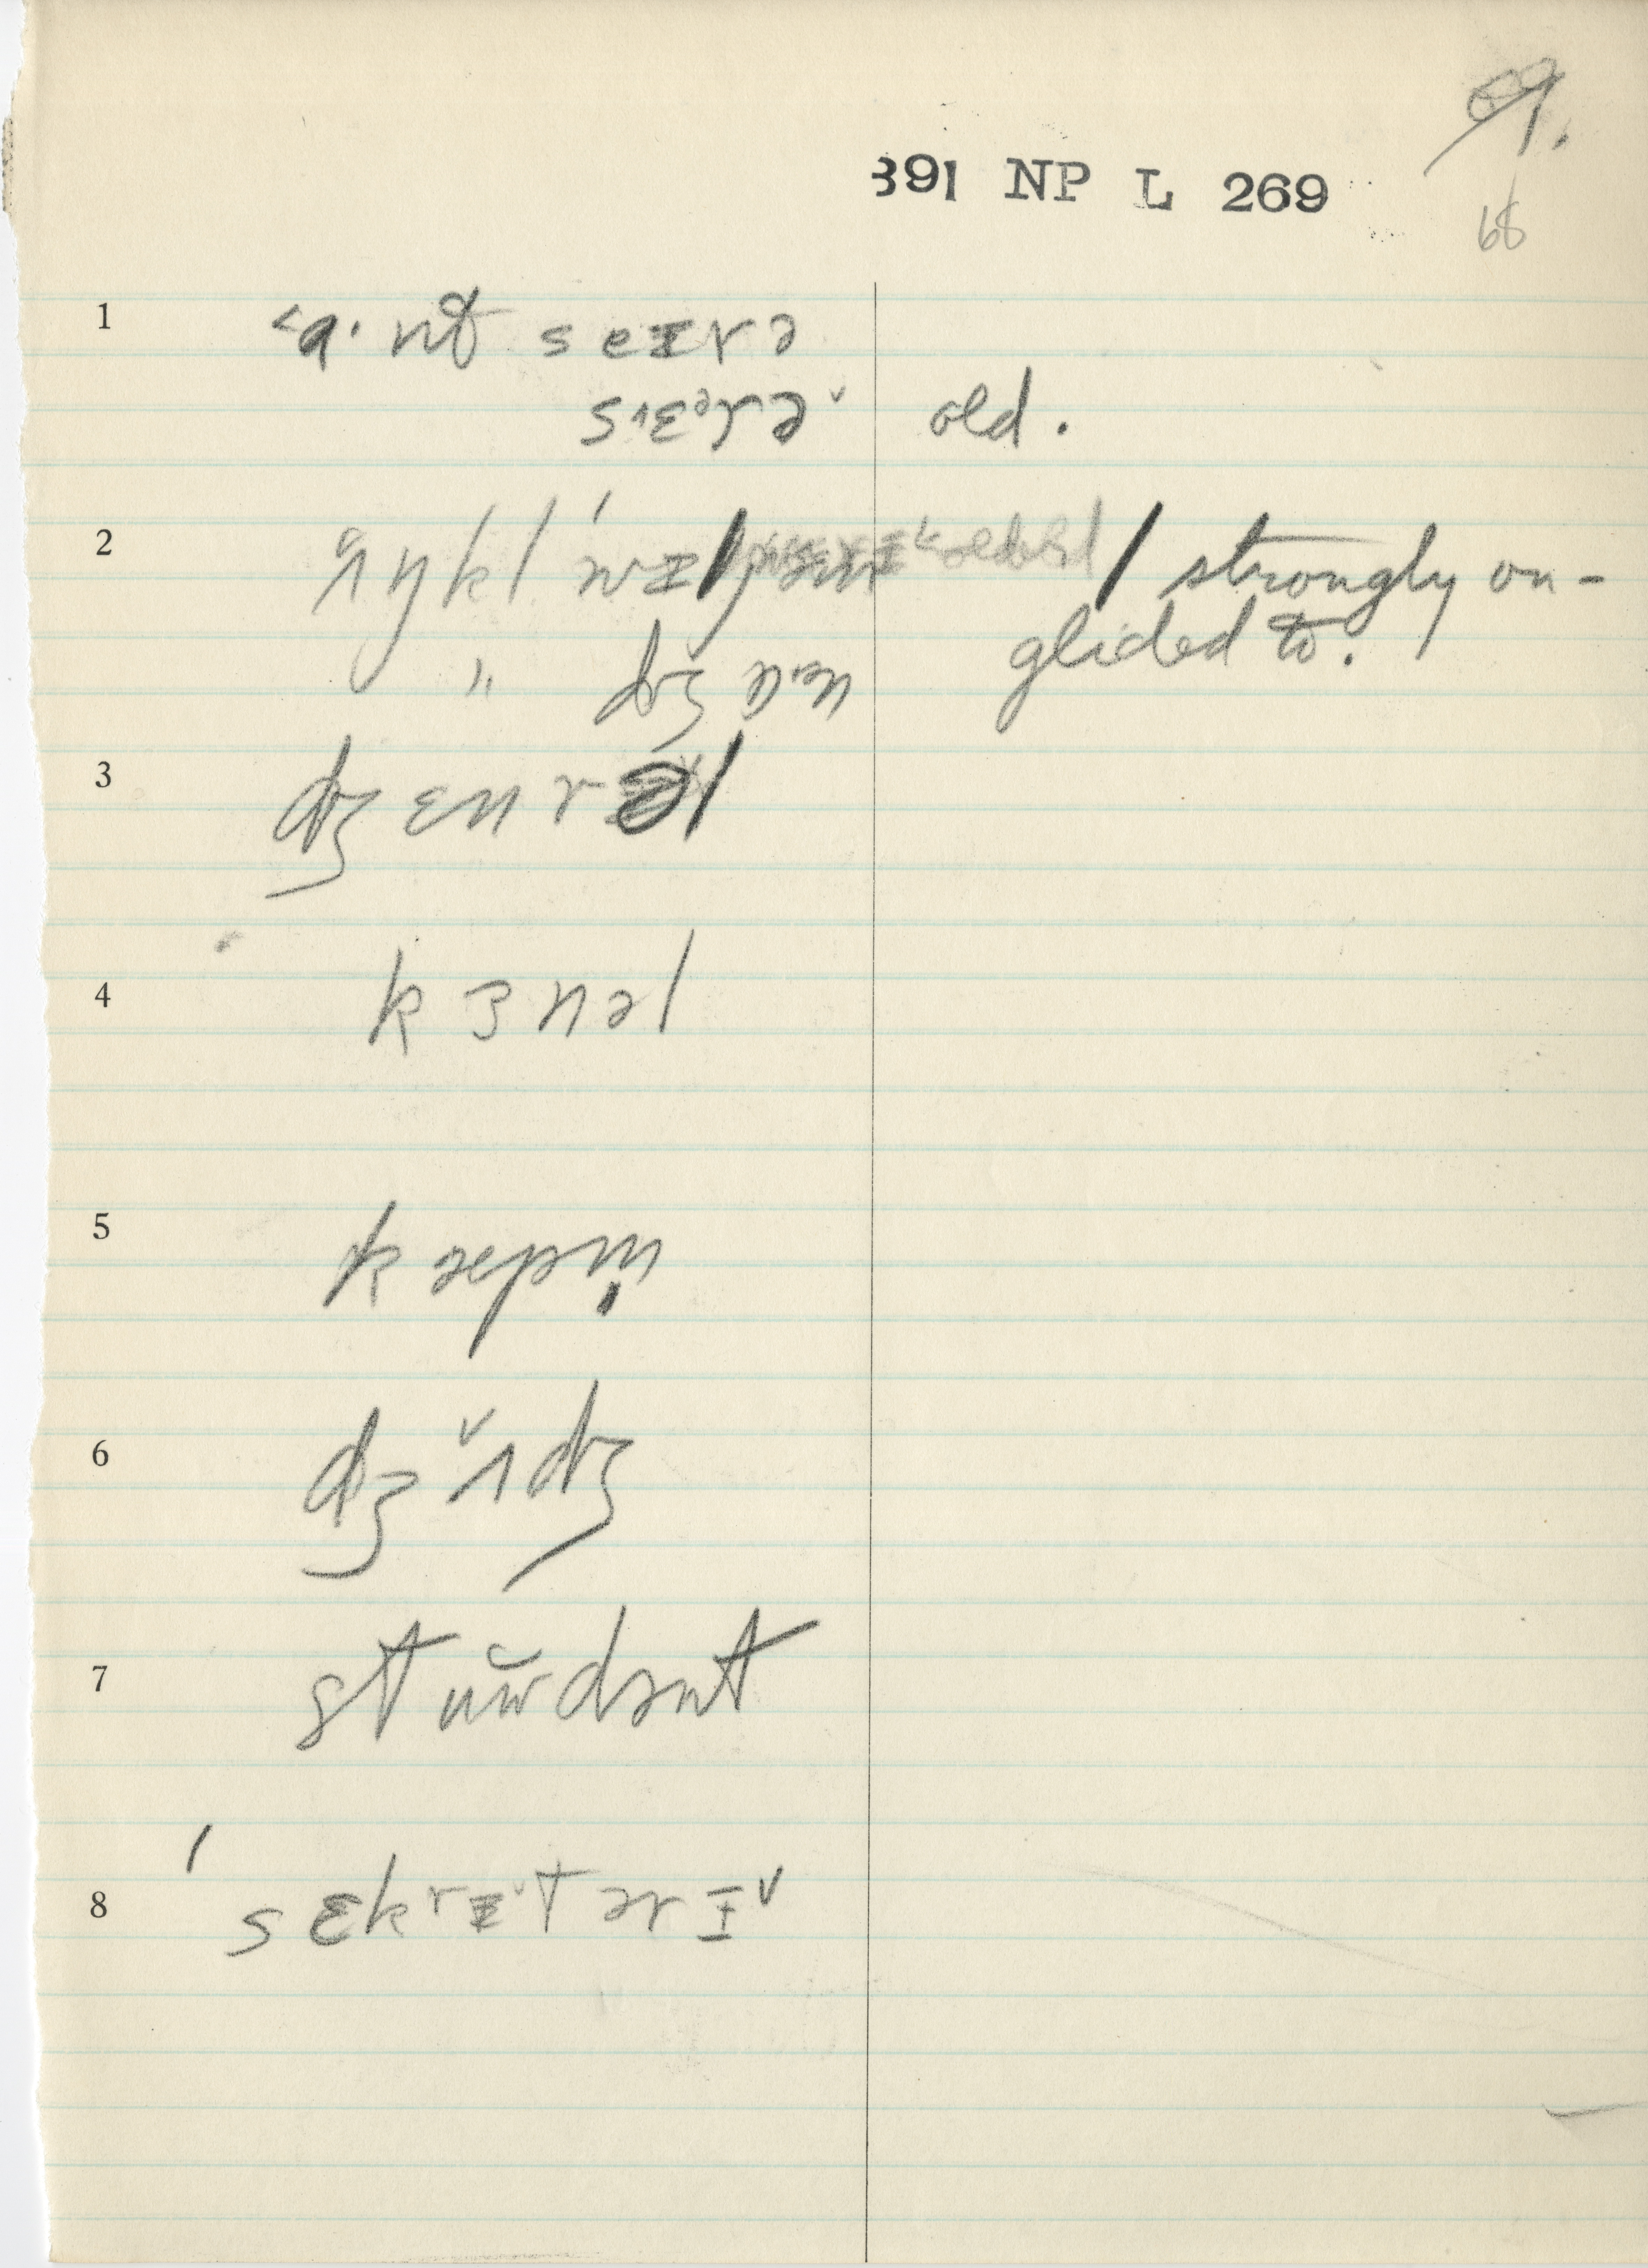 69.
391 NP L 269
68
1 ˂a· nt seɪrə
sᴧɛᵊrə˅ old.
2 ʌ̌ŋkl ˈwɪlj / strongly on-
" dʒɒn glided to.
3 dʒɛnrəl
4 kɜnəl
5 kæpm̩
6 dʒʌ̌dʒ
7 stŭudənt
8 ˈsɛkrɪ˅tərɪ˅